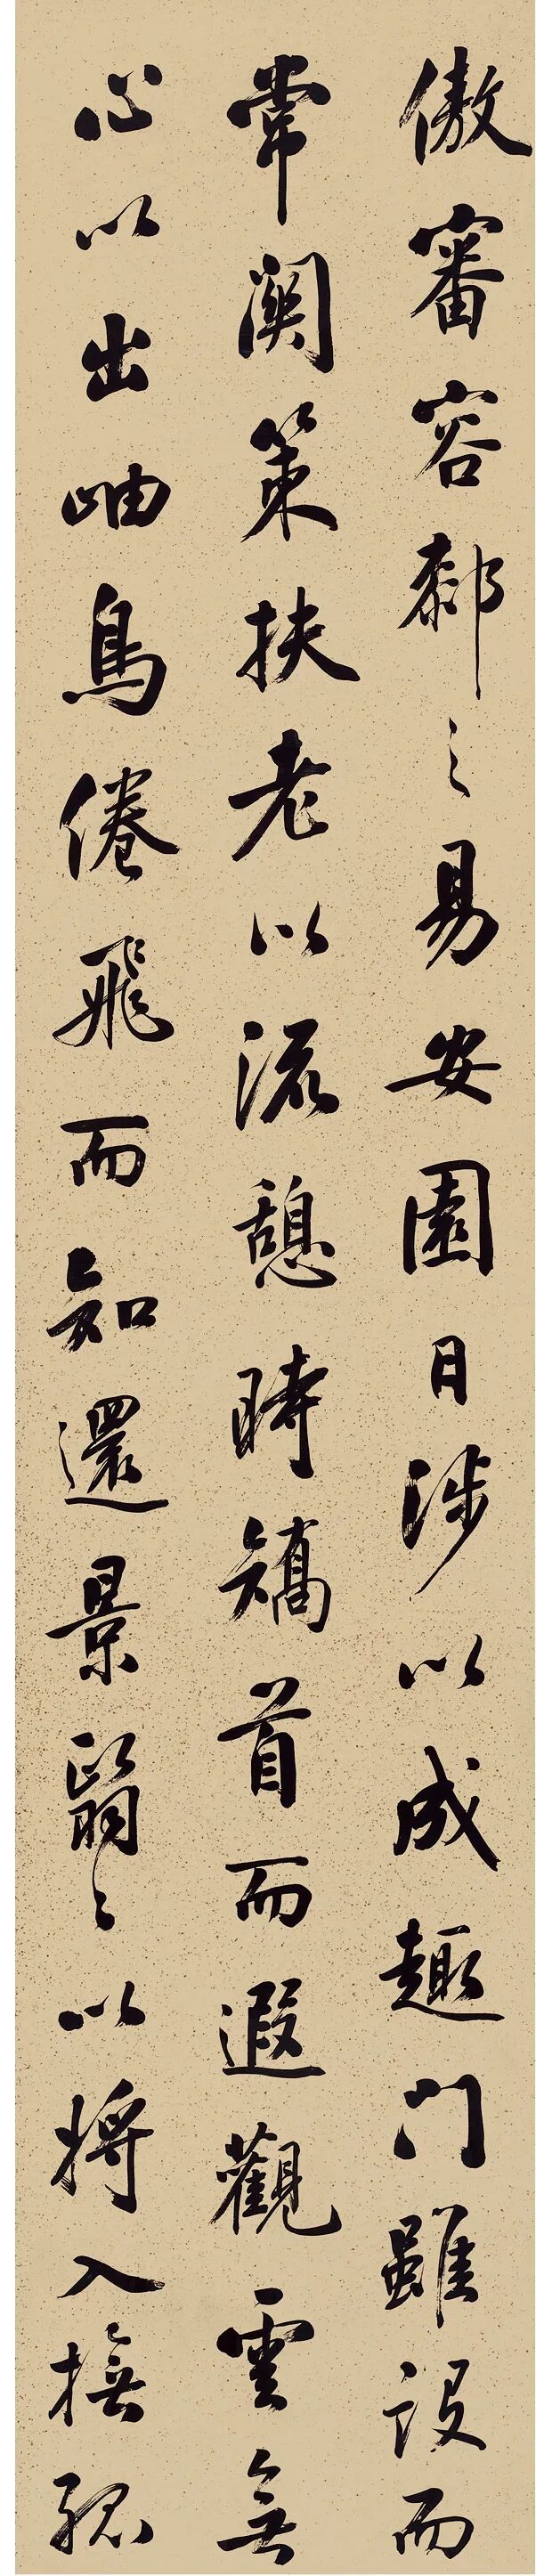 傲審容郀之易安園日涉以成趣門雖設而
常関策扶老以流憩時矯首而遐觀雲無
心以出岫鳥倦飛而知還景翳〻以將入撫孤